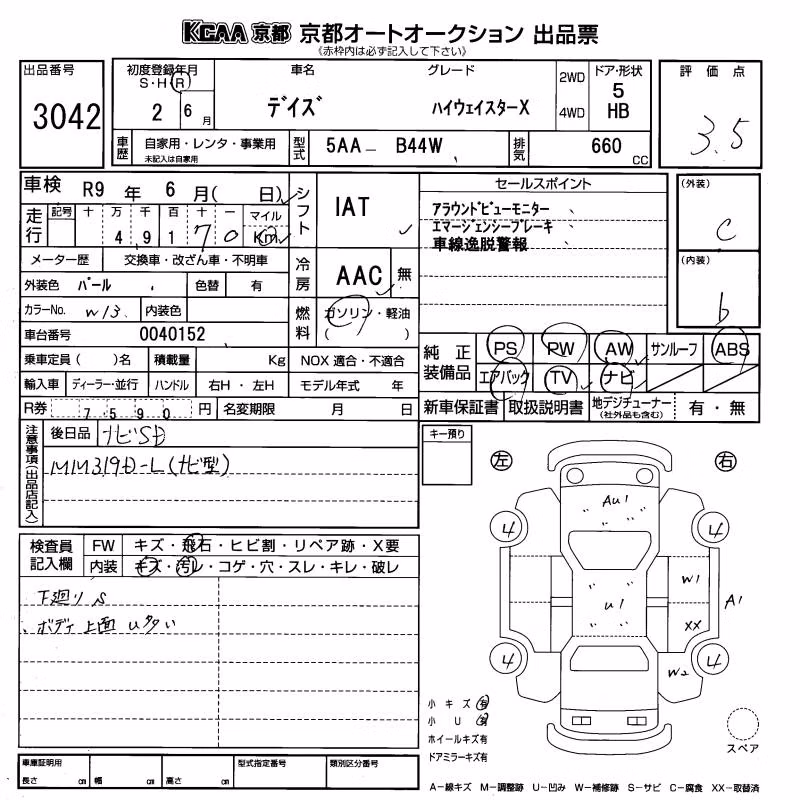 KCAA 京都 京都オートオークション 出品票
《赤枠内は必ず記入して下さい》
出品番号
3042
初度登録年月
S・H・R
2 6月
車名
デイズ
グレード
ハイウェイスターX
2WD
4WD
ドア・形状
5
HB
評価点
3.5
車歴
自家用・レンタ・事業用
未記入は自家用
型式
5AA－B44W
排気
660
CC
車検 R9年 6月( 日)
走行
記号 十 万 千 百 十 一 マイル
4 9 1 7 0 Km
メーター歴 交換車・改ざん車・不明車
外装色 パール 色替 有
カラーNo. W13 内装色
車台番号 0040152
乗車定員 ( )名 積載量 Kg NOX 適合・不適合
輸入車 ディーラー・並行 ハンドル 右H・左H モデル年式 年
R券 7590円 名変期限 月 日
シフト
IAT
冷房
AAC 無
燃料
ガソリン・軽油
( )
セールスポイント
アラウンドビューモニター
エマージェンシーブレーキ
車線逸脱警報
(外装)
C
(内装)
b
純正装備品
PS PW AW サンルーフ ABS
エアバック TV ナビ
新車保証書 取扱説明書 地デジチューナー(社外品も含む) 有・無
注意事項(出品店記入)
後日品 ナビSD
MM319D-L(ナビ型)
キー預り
検査員記入欄
FW キズ・飛石・ヒビ割・リペア跡・X要
内装 キズ・汚レ・コゲ・穴・スレ・キレ・破レ
下廻りS
ボディ上面 U多い
左 右
AU1
4 4
W1
A1
U1
XX
4 4
W2
小キズ 有
小U 有
ホイールキズ有
ドアミラーキズ有
スペア
車庫証明用
長さ cm 幅 cm 高さ cm
型式指定番号
類別区分番号
A－線キズ M－調整跡 U－凹み W－補修跡 S－サビ C－腐食 XX－取替済